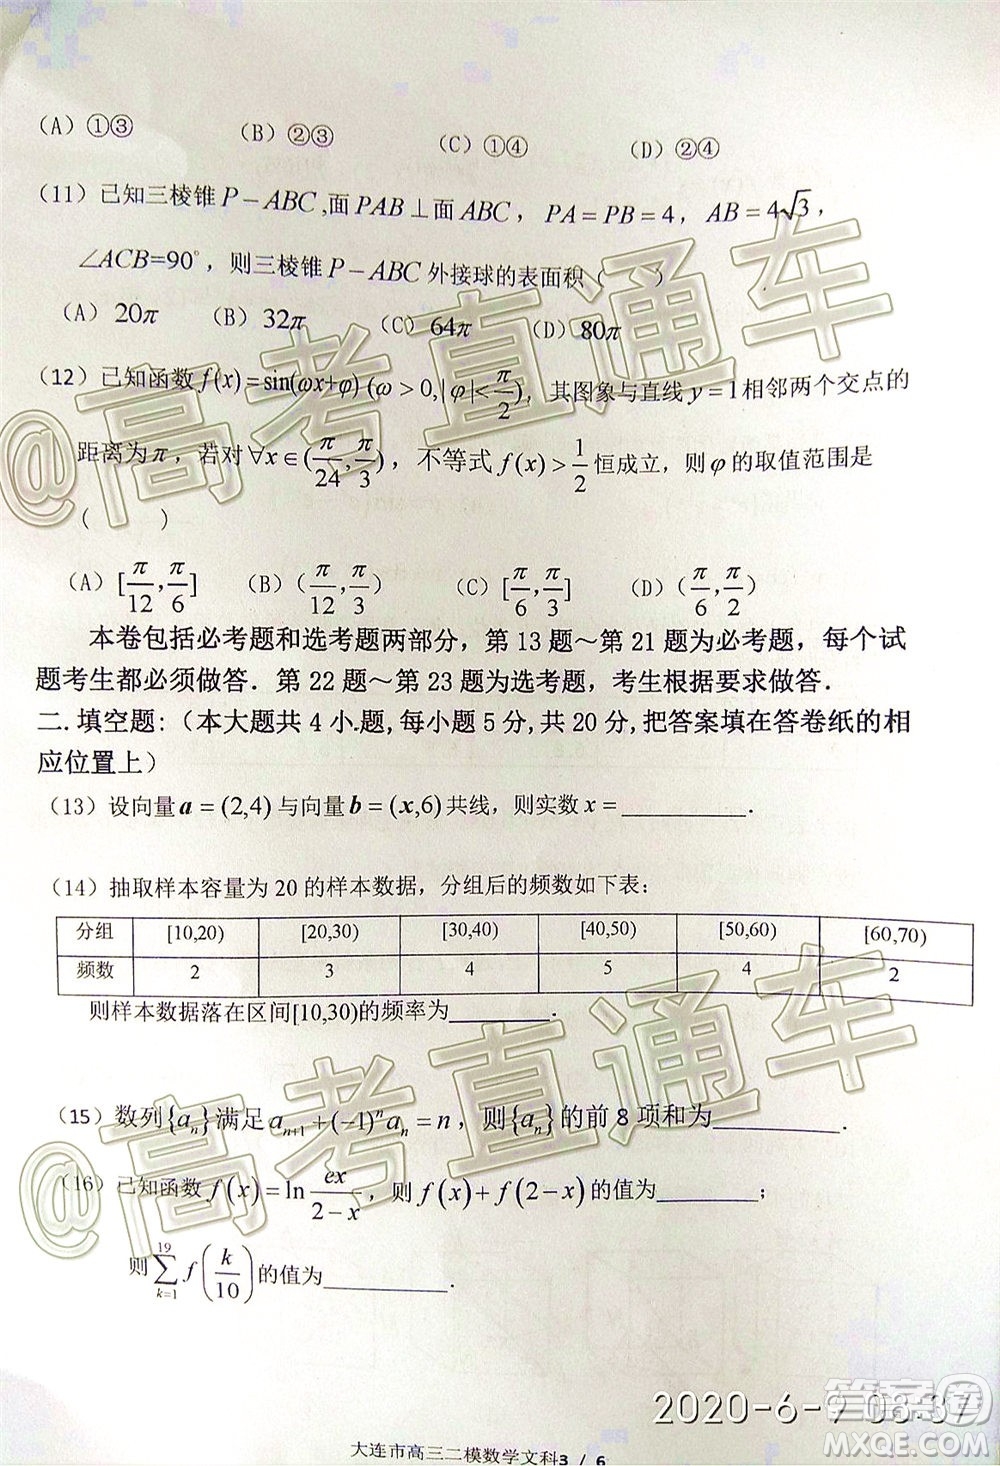 (A) ①③ (B) ②③ (C) ①④ (D) ②④
(11) 已知三棱锥 P－ABC,面 PAB⊥面 ABC， PA＝PB＝4， AB＝4√3，
∠ACB=90°，则三棱锥 P－ABC 外接球的表面积（ ）
(A) 20π (B) 32π (C) 64π (D) 80π
(12) 已知函数 f(x)=sin(ωx+φ)(ω>0,|φ|<π/2)，其图象与直线 y=1相邻两个交点的
距离为π，若对∀x∈(π/24,π/3)，不等式 f(x)>1/2 恒成立，则φ的取值范围是
( )
(A) [π/12,π/6] (B) (π/12,π/3) (C) [π/6,π/3] (D) (π/6,π/2)
本卷包括必考题和选考题两部分，第 13 题～第 21 题为必考题，每个试
题考生都必须做答．第 22 题～第 23 题为选考题，考生根据要求做答．
二.填空题:（本大题共 4 小.题,每小题 5 分,共 20 分,把答案填在答卷纸的相
应位置上）
(13) 设向量 a＝(2,4)与向量 b＝(x,6)共线，则实数 x＝__________．
(14) 抽取样本容量为 20 的样本数据，分组后的频数如下表：
分组 [10,20) [20,30) [30,40) [40,50) [50,60) [60,70)
频数 2 3 4 5 4 2
则样本数据落在区间[10,30)的频率为__________．
(15) 数列{aₙ}满足 aₙ₊₁+(−1)ⁿaₙ=n，则{aₙ}的前 8 项和为__________．
(16) 已知函数 f(x)=ln ex/(2−x)，则 f(x)+f(2−x)的值为________；
则 ∑_{k=1}^{19} f(k/10)的值为__________．
@高考直通车
@高考直通车
2020-6-9 08:37
答案圈
MXQE.COM
大连市高三二模数学文科3 / 6